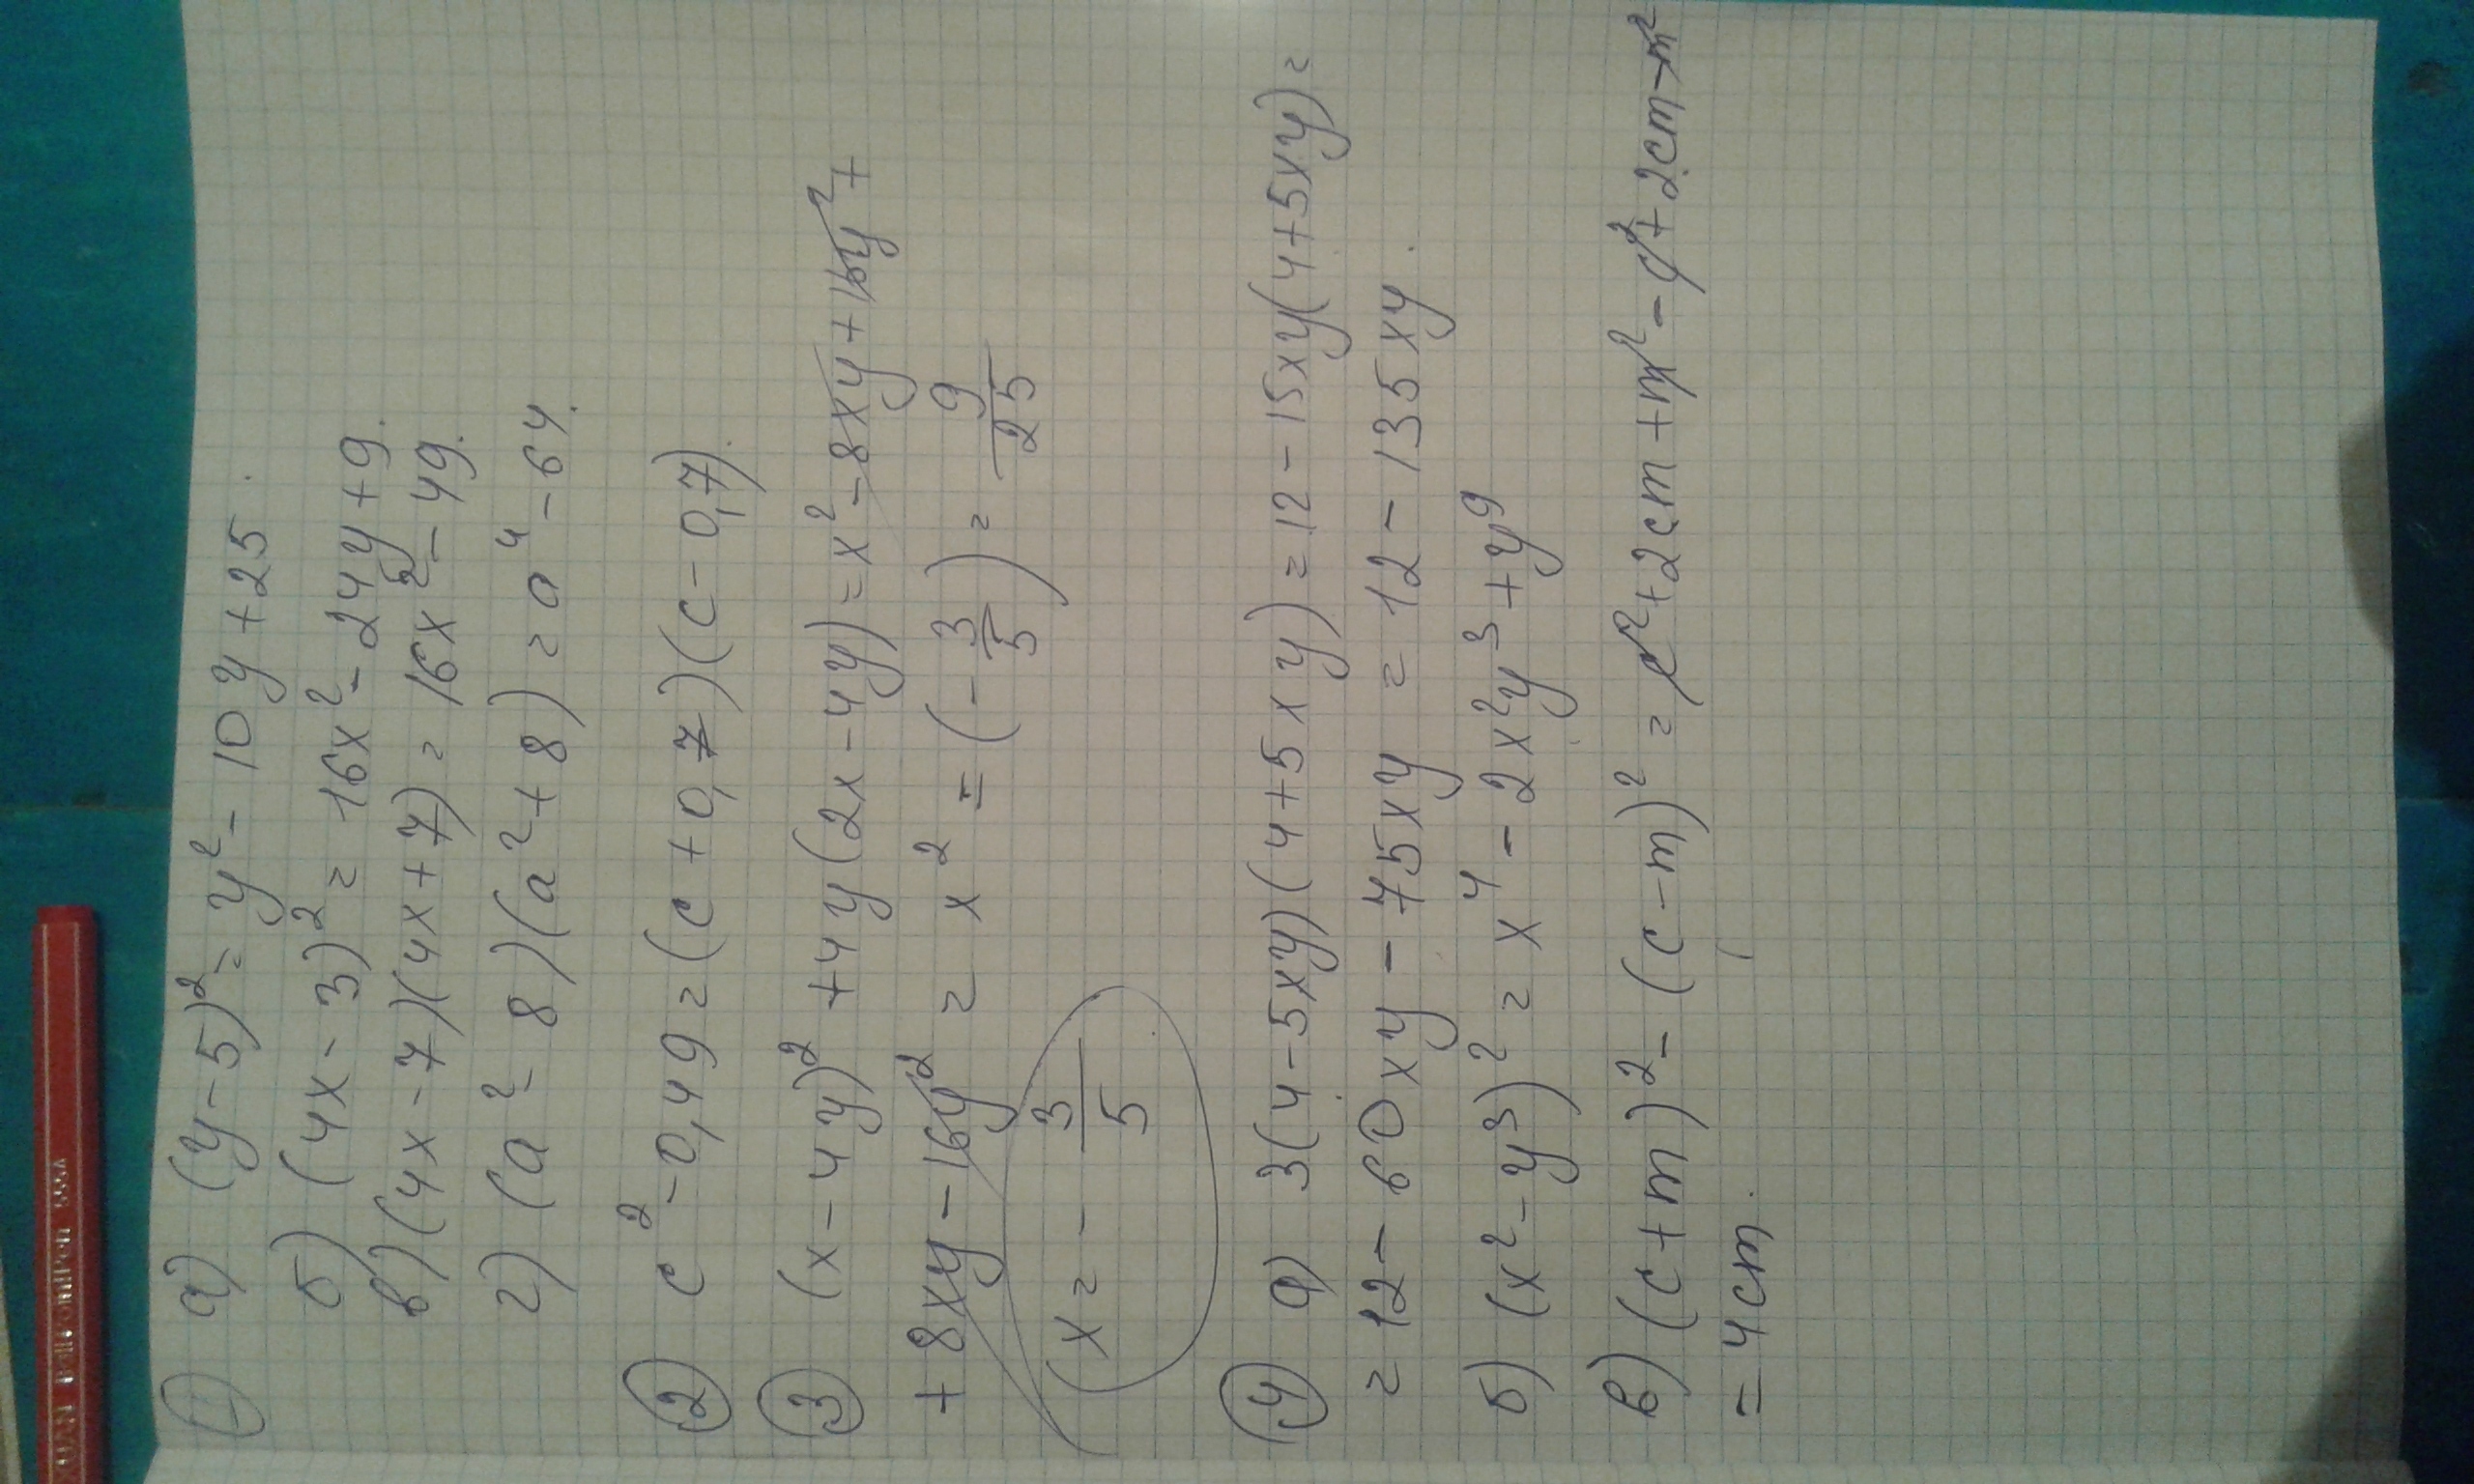 ① а) (y-5)² = y² - 10y + 25.
б) (4x - 3)² = 16x² - 24y + 9.
в) (4x - 7)(4x + 7) = 16x² - 49.
г) (a² - 8)(a² + 8) = a⁴ - 64.
② c² - 0,49 = (c + 0,7)(c - 0,7).
③ (x - 4y)² + 4y(2x - 4y) = x² - 8xy + 16y² +
+ 8xy - 16y² = x² = (-3/5) = 9/25
(x = - 3/5
④ а) 3(4-5xy)(4+5xy) = 12 - 15xy(4+5xy) =
= 12 - 60xy - 75xy = 12 - 135xy.
б) (x² - y³)² = x⁴ - 2x²y³ + y⁹
в) (c+m)² - (c-m)² = c² + 2cm + m² - c² + 2cm - m²
= 4cm.